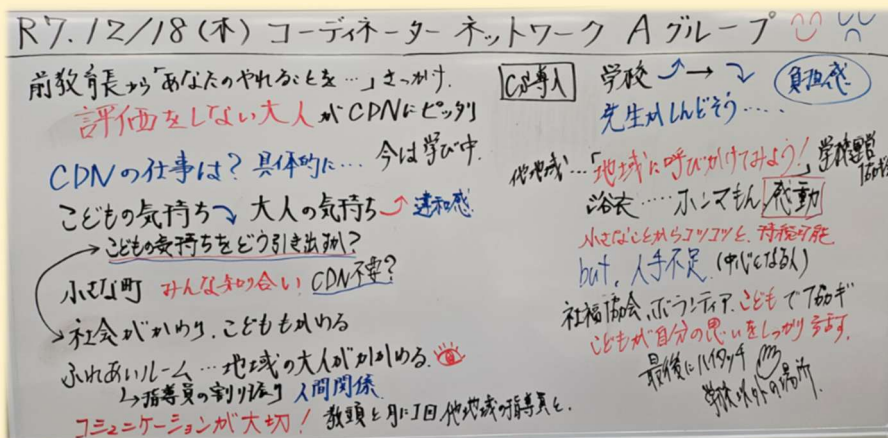 R7.12/18(木) コーディネーターネットワーク Aグループ
前教育長から「あなたのやれることを…」きっかけ.
評価をしない大人がCDNにピッタリ
CDNの仕事は? 具体的に… 今は学び中.
こどもの気持ち 大人の気持ち 違和感
こどもの気持ちをどう引き出すか?
小さな町 みんな知り合い CDN不要?
社会がかわり、こどももかわる
ふれあいルーム…地域の大人がかかわる.
指導員の割り振り 人間関係
コミュニケーションが大切! 教頭と月に1回 他地域の指導員と.
CS導入 学校 → 負担感
先生がしんどそう……
他地域…「地域に呼びかけてみよう!」学校運営協
浴衣……ホンマもん 感動
小さなことからコツコツと、持続可能
but、人手不足.(中心となる人)
社福協会、ボランティア、こどもで
こどもが自分の思いをしっかり話す.
最後にハイタッチ
学校以外の場所.